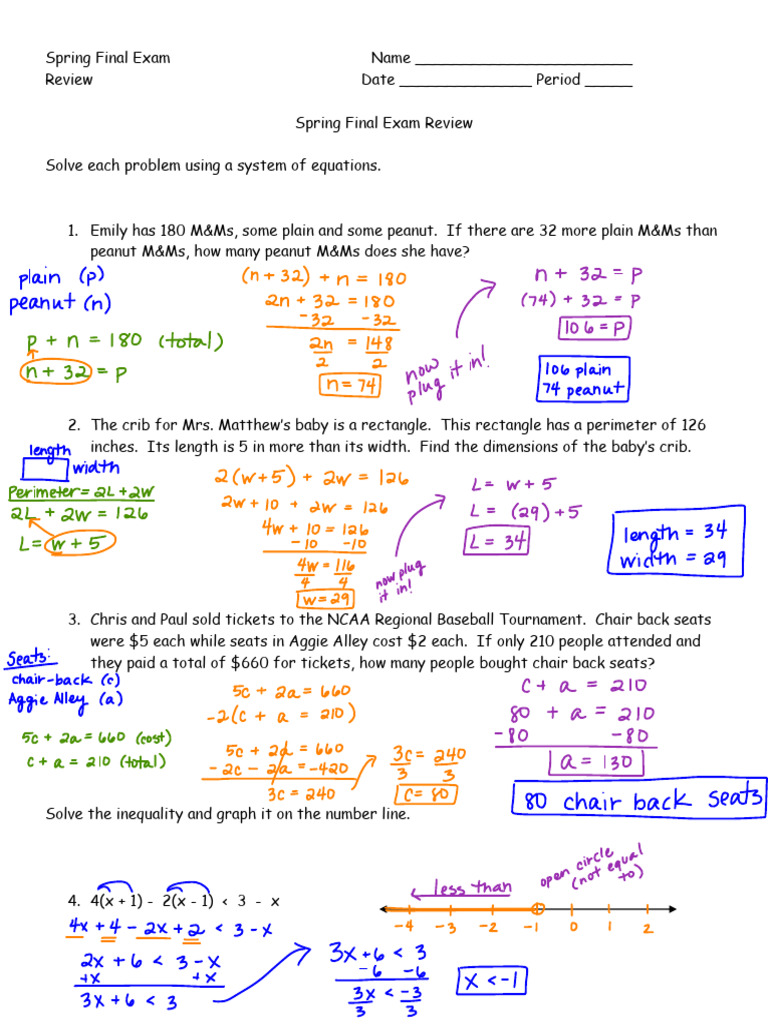 Spring Final Exam Name ________________________
Review Date ______________ Period _____
Spring Final Exam Review
Solve each problem using a system of equations.
1. Emily has 180 M&Ms, some plain and some peanut. If there are 32 more plain M&Ms than
peanut M&Ms, how many peanut M&Ms does she have?
plain (p)
peanut (n)
p + n = 180 (total)
n + 32 = p
(n + 32) + n = 180
2n + 32 = 180
-32 -32
2n = 148
2 2
n = 74
now
plug it in!
n + 32 = p
(74) + 32 = p
106 = p
106 plain
74 peanut
2. The crib for Mrs. Matthew's baby is a rectangle. This rectangle has a perimeter of 126
inches. Its length is 5 in more than its width. Find the dimensions of the baby's crib.
length
width
Perimeter = 2L + 2W
2L + 2w = 126
L = w + 5
2(w+5) + 2w = 126
2w + 10 + 2w = 126
4w + 10 = 126
-10 -10
4w = 116
4 4
w = 29
now plug
it in!
L = w + 5
L = (29) + 5
L = 34
length = 34
width = 29
3. Chris and Paul sold tickets to the NCAA Regional Baseball Tournament. Chair back seats
were $5 each while seats in Aggie Alley cost $2 each. If only 210 people attended and
they paid a total of $660 for tickets, how many people bought chair back seats?
Seats:
chair-back (c)
Aggie Alley (a)
5c + 2a = 660 (cost)
c + a = 210 (total)
5c + 2a = 660
-2(c + a = 210)
5c + 2a = 660
-2c - 2a = -420
3c = 240
3c = 240
3 3
c = 80
c + a = 210
80 + a = 210
-80 -80
a = 130
80 chair back seats
Solve the inequality and graph it on the number line.
4. 4(x + 1) - 2(x - 1) < 3 - x
4x + 4 - 2x + 2 < 3 - x
2x + 6 < 3 - x
+x +x
3x + 6 < 3
3x + 6 < 3
-6 -6
3x < -3
3 3
x < -1
less than
open circle
(not equal
to)
-4 -3 -2 -1 0 1 2